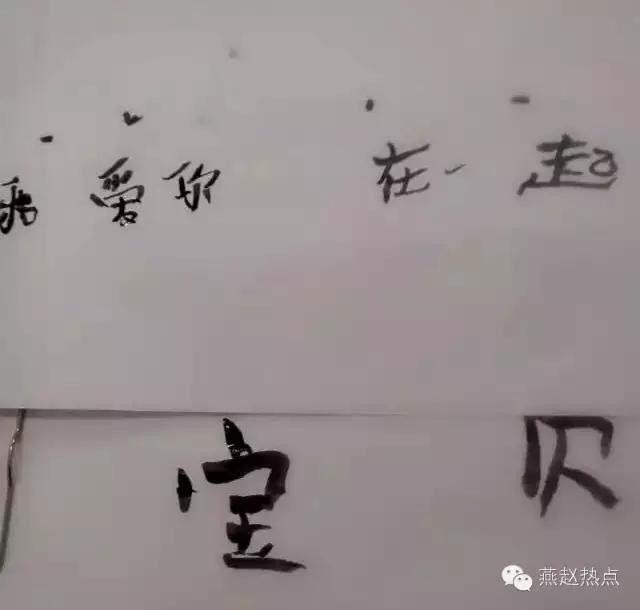 我爱你 在一起
宝贝
燕赵热点